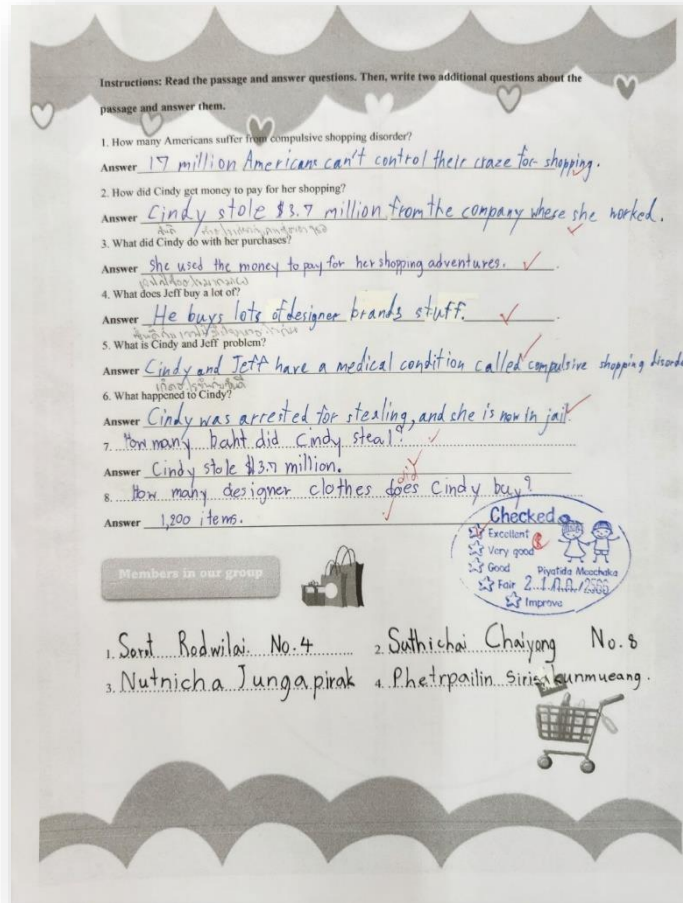 Instructions: Read the passage and answer questions. Then, write two additional questions about the
passage and answer them.
1. How many Americans suffer from compulsive shopping disorder?
Answer 17 million Americans can't control their craze for shopping.
2. How did Cindy get money to pay for her shopping?
Answer Cindy stole $3.7 million from the company where she worked.
3. What did Cindy do with her purchases?
Answer She used the money to pay for her shopping adventures.
4. What does Jeff buy a lot of?
Answer He buys lots of designer brands stuff.
5. What is Cindy and Jeff problem?
Answer Cindy and Jeff have a medical condition called compulsive shopping disorde
6. What happened to Cindy?
Answer Cindy was arrested for stealing, and she is now in jail.
7. How many baht did Cindy steal?
Answer Cindy stole $3.7 million.
did
8. How many designer clothes does Cindy buy?
Answer 1,200 items.
Checked
Excellent
Very good
Good
Piyatida Moochaka
Fair
Improve
Members in our group
1. Sorat Rodwilai No.4
2. Suthichai Chaiyong No.8
3. Nutnicha Jungapirak
4. Phetrpailin Sirisakunmueang.